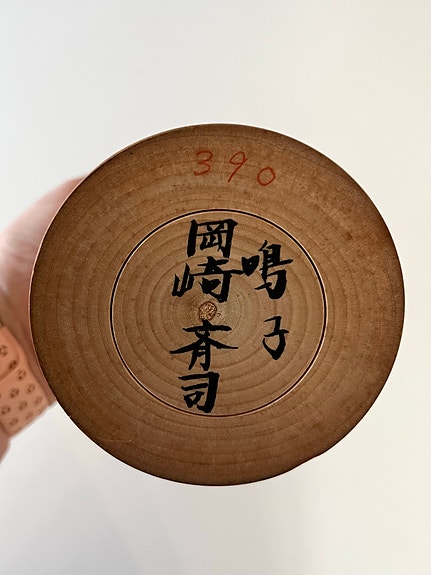 390
鳴子
岡崎斉司